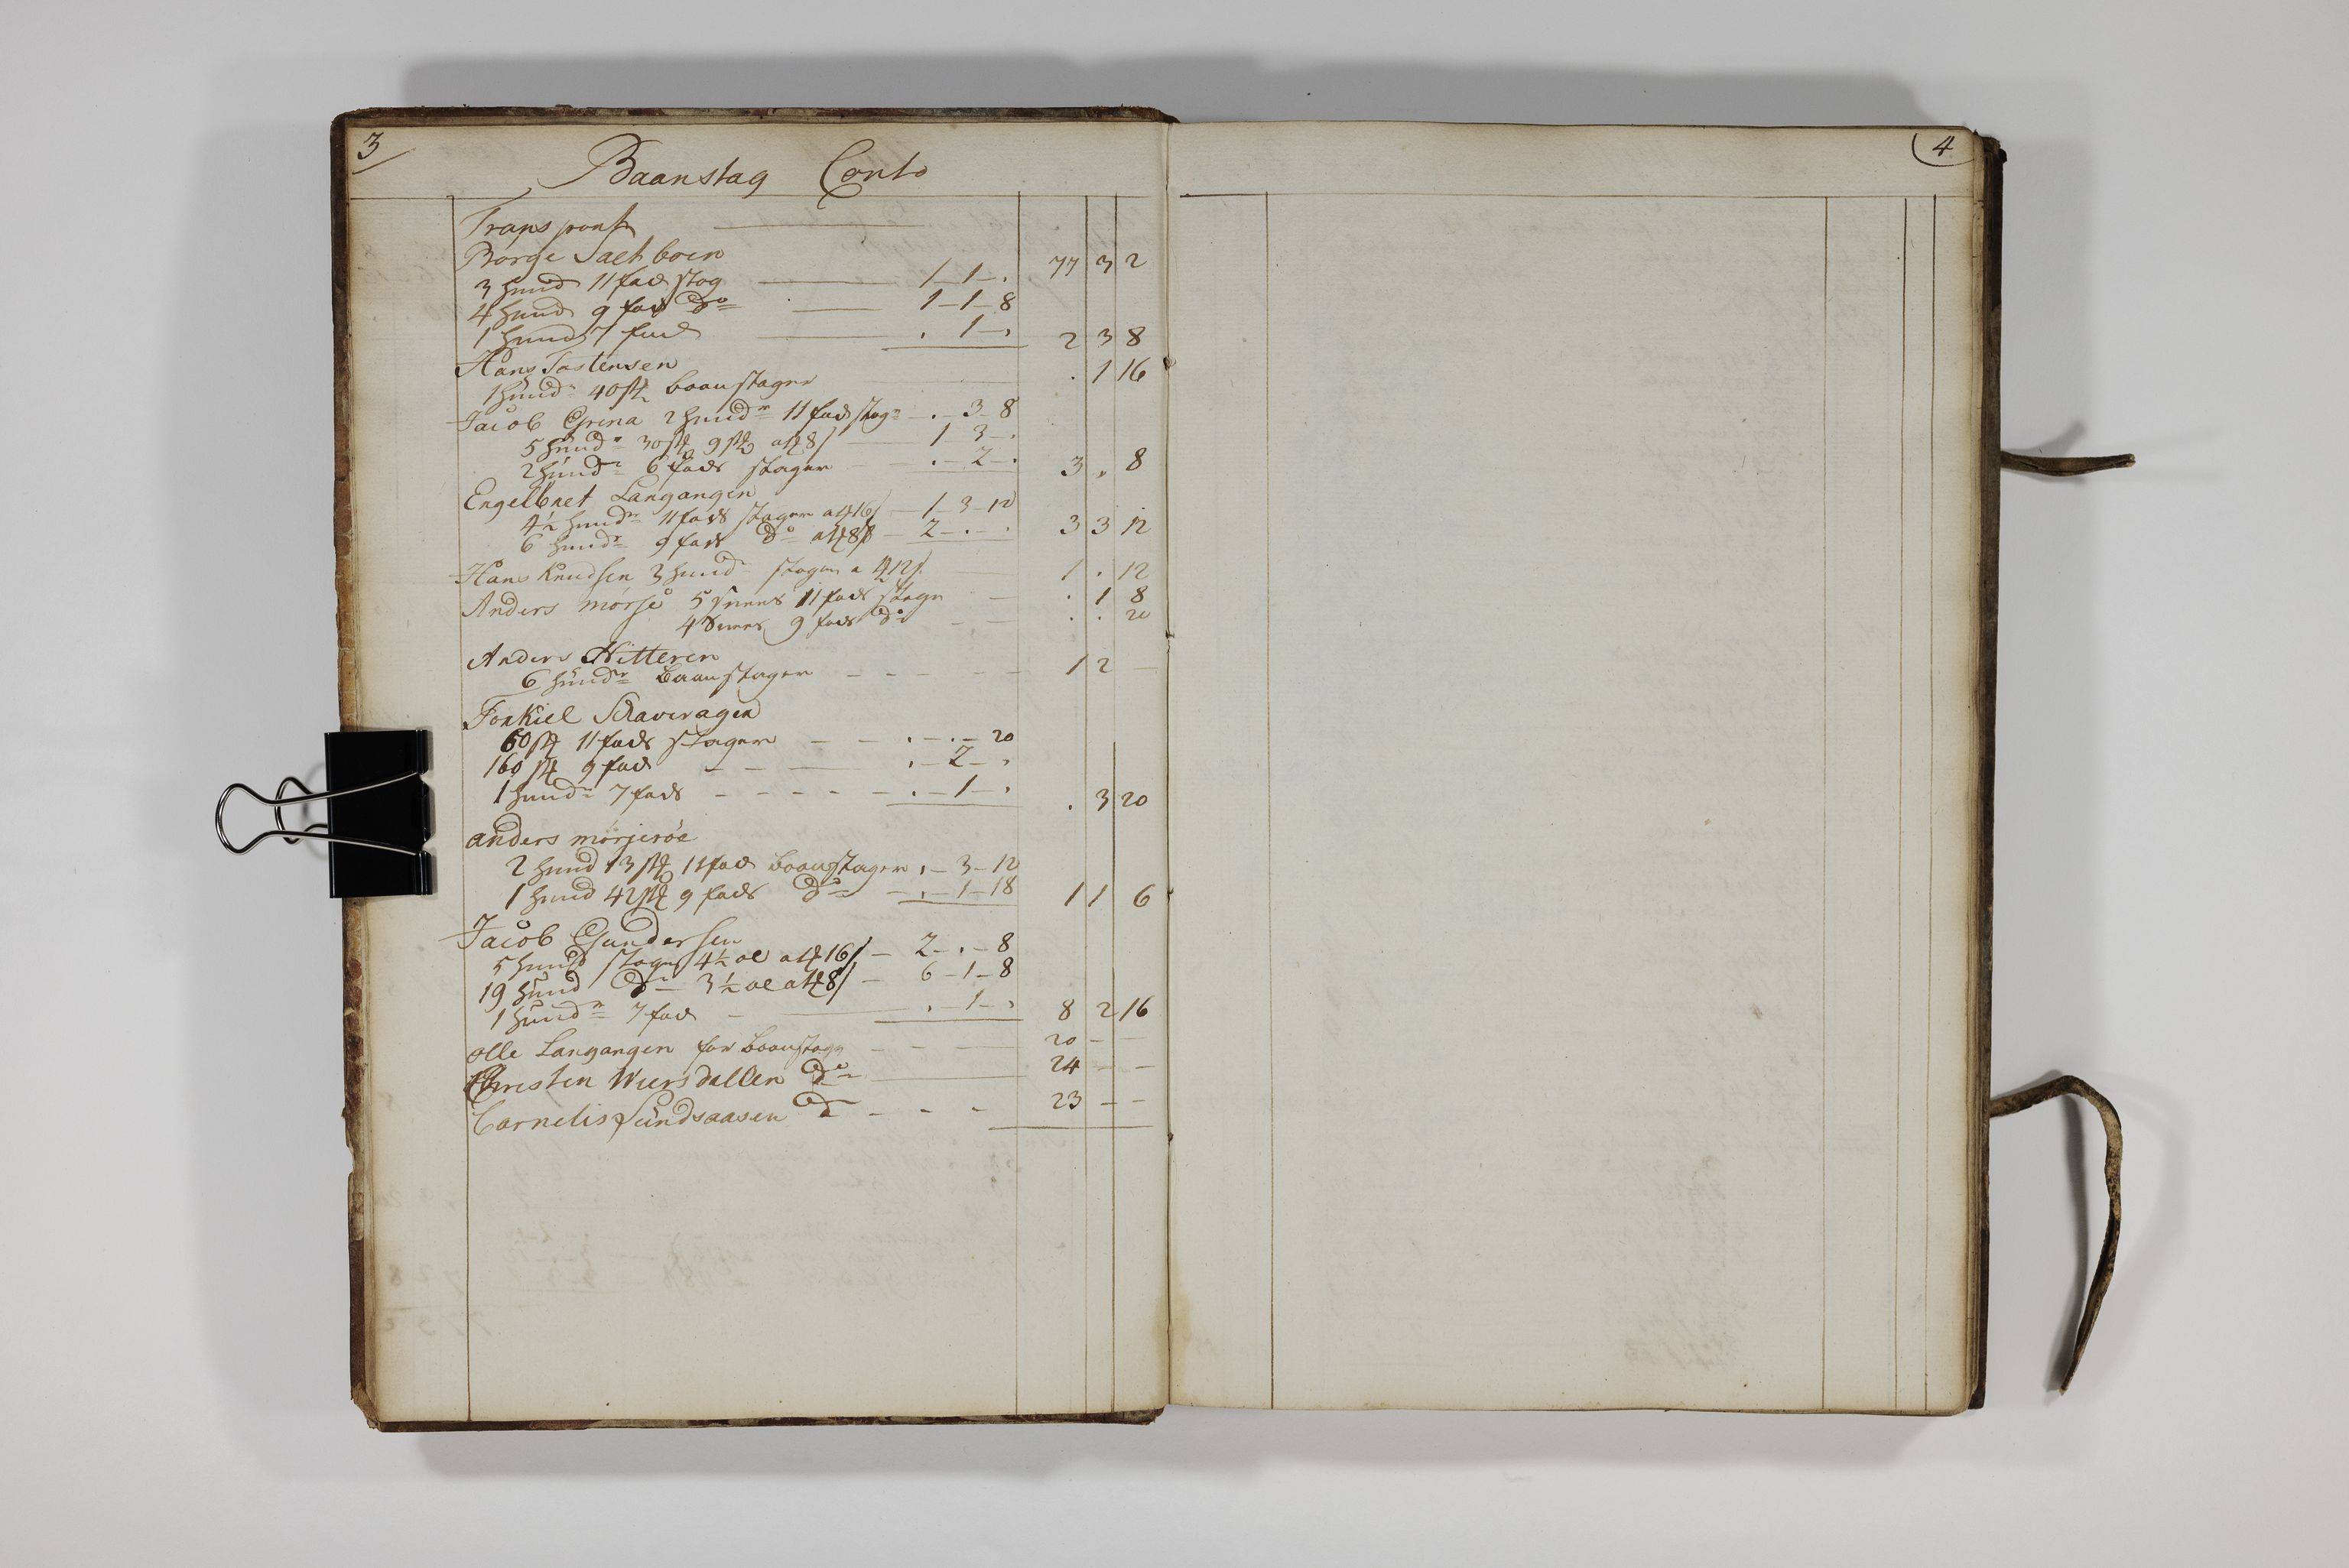 3
Baanstag Conto
Transport 77 3 2
Børge Saltboen
3 hund 11 fad stag 1-1-.
4 hund 9 fad do 1-1-8
1 hund 7 fad .1-. 2 3 8
Hans Tostensen . 1 16
1 hundr 40 stk baanstager
Jacob Grina 2 hundr 11 fad stagr .-3-8
5 hundr 30 stk 9 stk a 1/8 1 3-.
2 hundr 6 fads stager .-2-. 3 . 8
Engelbret Langangen
4½ hundr 11 fads stager a 1/16 1-3-12
6 hundr 9 fads do a 1/8 2-.-. 3 3 12
Hans Knudsen 3 hundr stager a 1/12 1 . 12
Anders mørje 5 Snees 11 fads stagr . 1 8
4 Snees 9 fads do . . 20
Anders Hitteren 1 2 -
6 hundr baanstager
Torkiel
60 stk 11 fads stager .-.-20
160 stk 9 fad .-2-.
1 hundr 7 fads .-1-. . 3 20
anders mørjerøe
2 hund 13 stk 11 fad baanstager .-3-12
1 hund 42 stk 9 fads do .-1-18 1 1 6
Jacob Gundersen
5 hund stagr 4½ al a 1/16 2-.-8
19 hund do 3½ al a 1/8 6-1-8
1 hundr 7 fad .-1-. 8 2 16
olle Langangen for baanstagr 20 - -
Christen Wiersdallen do 24 - -
Cornelis Sundsaasen do 23 - -
4